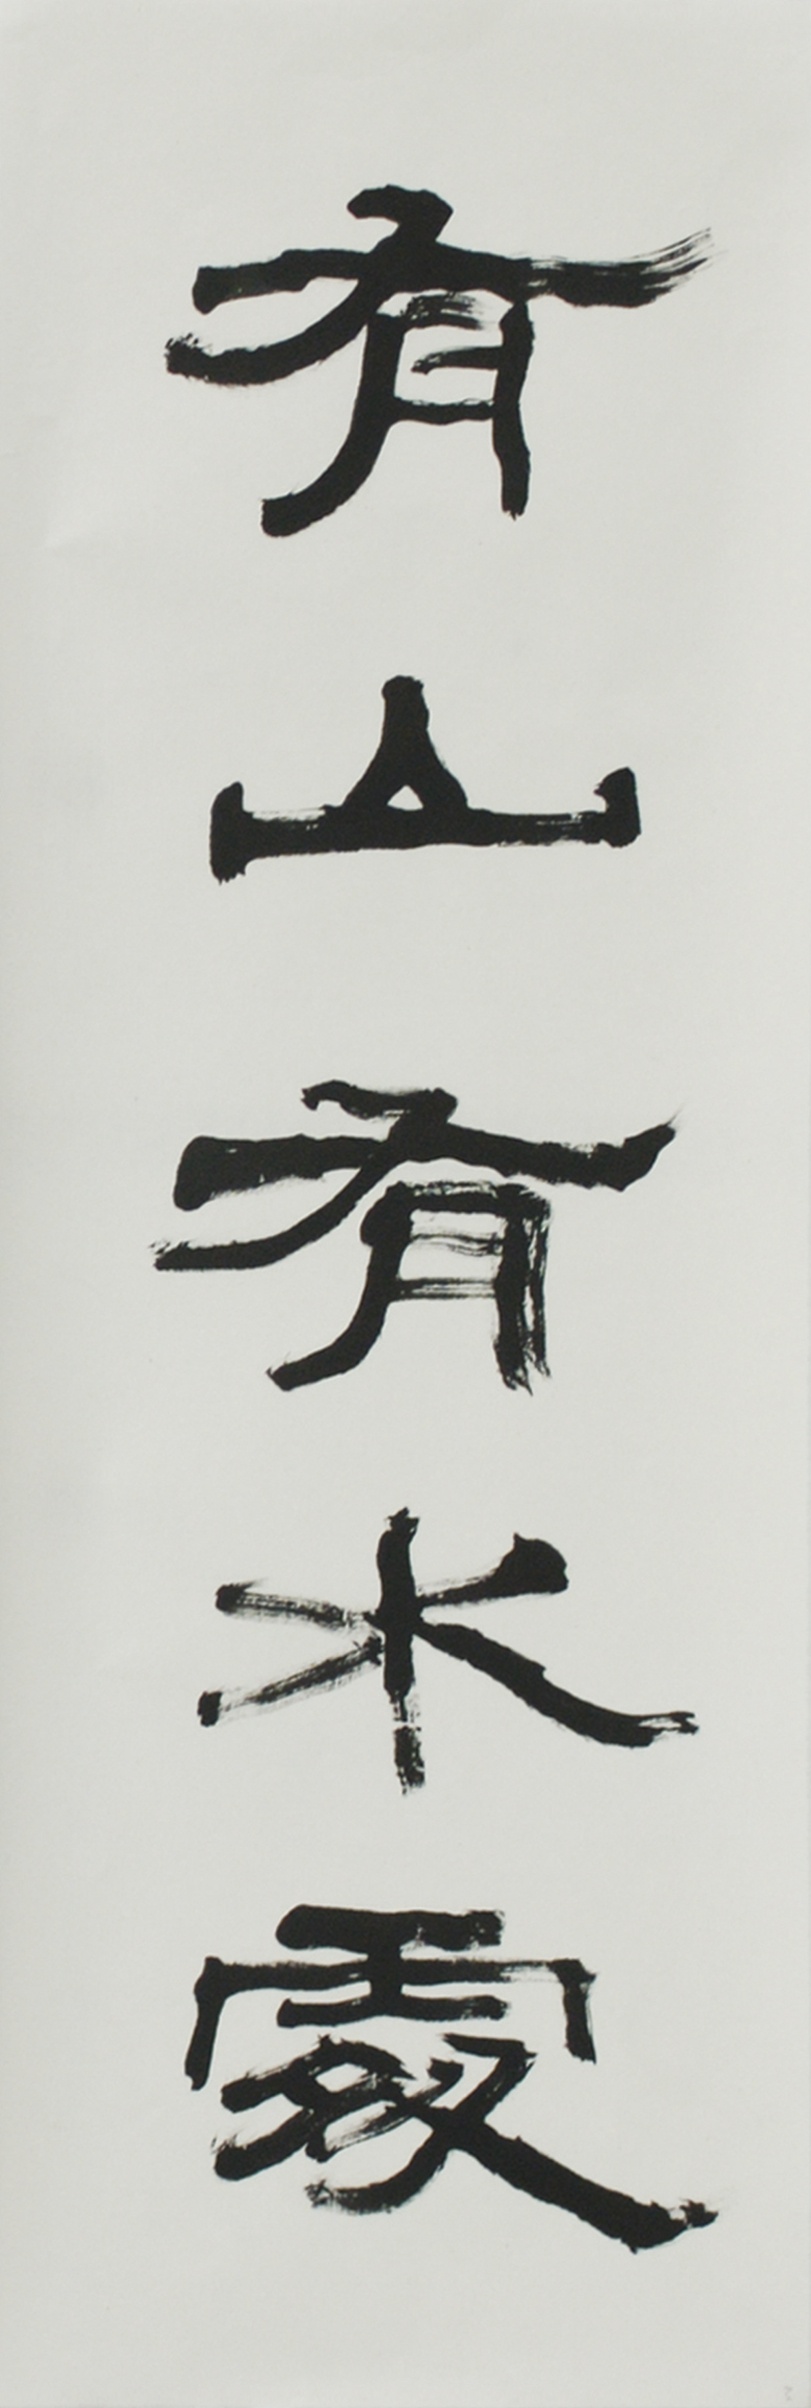 有山有水處